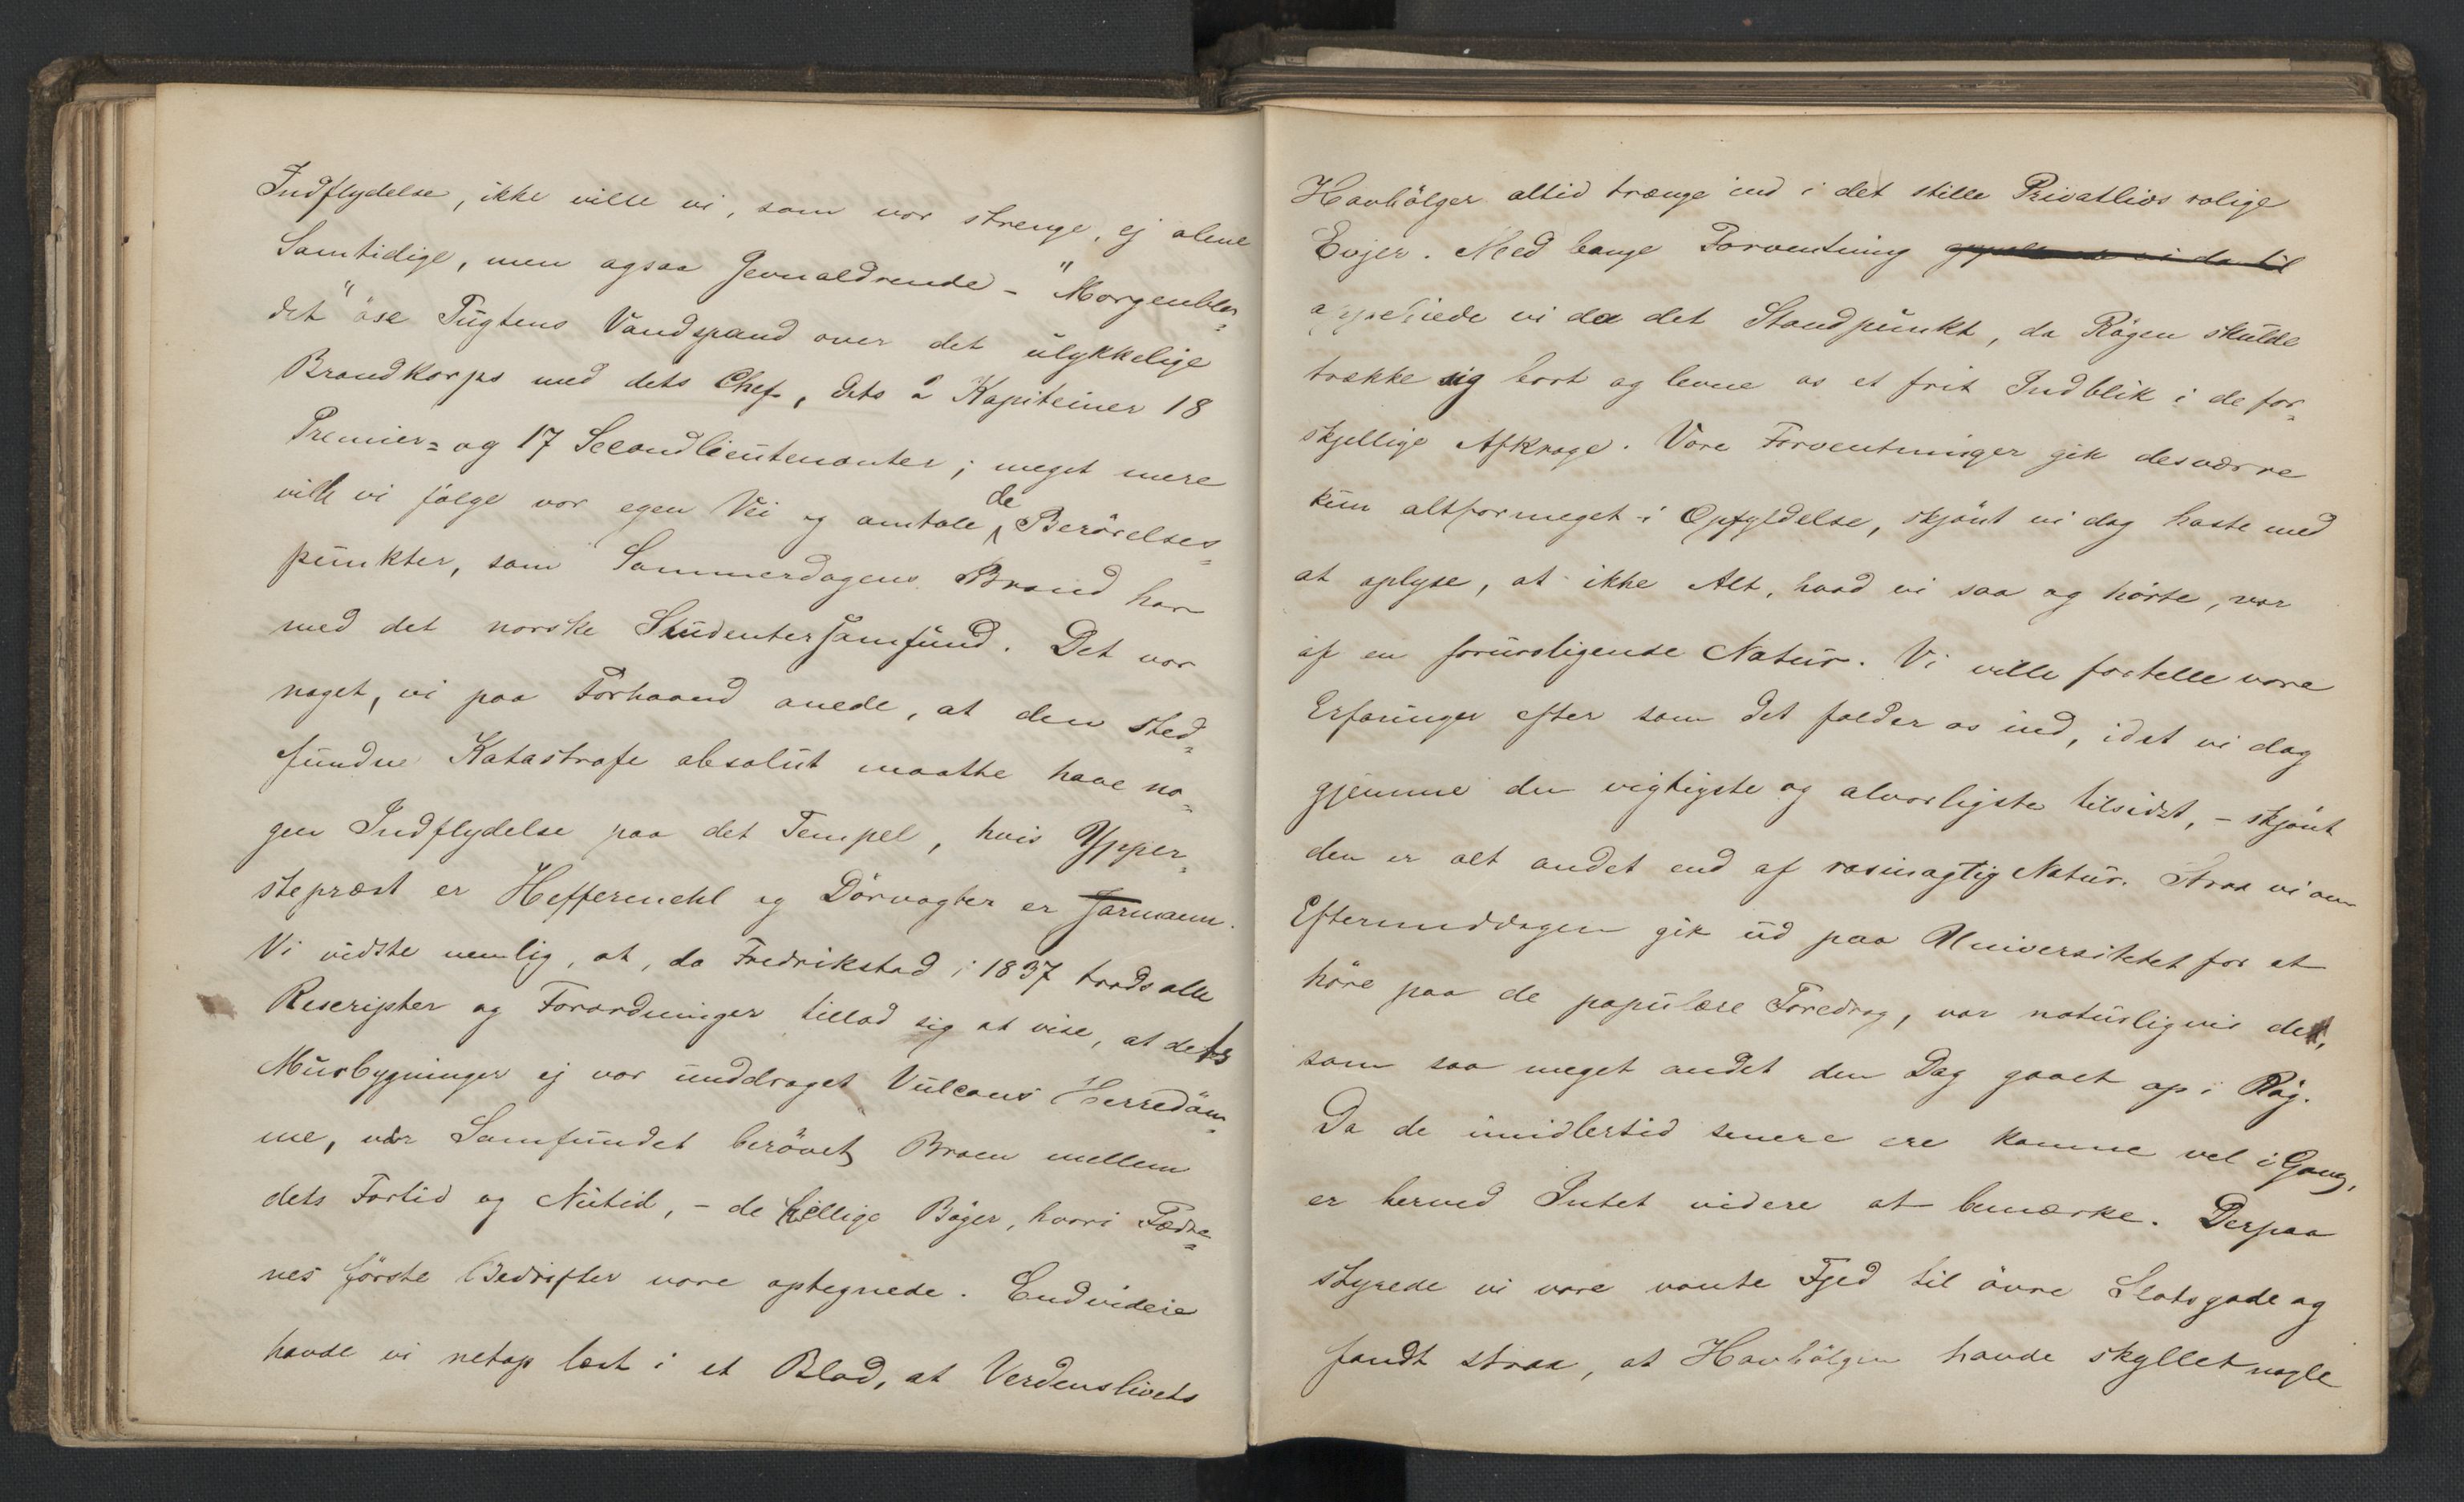 Indflydelse, ikke ville vi, som vor strenge, ej alene
Samtidige, men ogsaa Jevnaldrende - "Morgenbla=
det" öse Tugtens Vandspand over det ulykkelige
Brandkorps med dets Chef, dets 2 Kapiteiner 18
Premier= og 17 Secondlieutenanter; meget mere
ville vi følge vor egen Vei og omtale de Berörelses=
punkter, som Sommerdagens Brand har
med det norske Studentersamfund. Det var
noget, vi paa Forhaand anede, at den sted=
fundne Katastrofe absolut maatte have no=
gen Indflydelse paa det Tempel, hvis Ypper=
stepræst er Heffermehl og Dörvogter er Jarmann.
Vi vidste nemlig, at, da Fredrikstad i 1837 trods alle
Rescripter og Forordninger tillod sig at vise, at dets
Murbygninger ej var unddraget Vulcans Herredöm=
me, var Samfundet berövet Broen mellem
dets Fortid og Nutid, - de hellige Böger, hvori Fædre=
nes förste Bedrifter vare optegnede. Endvidere
havde vi netop læst i et Blad, at Verdenslivets
Havbölger altid trænge ind i det stille Privatlivs rolige
Evjer. Med bange Forventning
oppebiede vi da det Standpunkt, da Rögen skulde
trække sig bort og levne os et frit Indblik i de for=
skjellige Afkroge. Vore Forventninger gik desværre
kun altformeget i Opfyldelse, skjönt vi dog haste med
at oplyse, at ikke Alt, hvad vi saa og hörte, var
af en foruroligende Natur. Vi ville fortelle vore
Erfaringer efter som det falder os ind, idet vi dog
gjemme den vigtigste og alvorligste tilsidst, - skjönt
den er alt andet end af rosinagtig Natur. Strax vi om
Eftermiddagen gik ud paa Universitetet for at
höre paa de populære Foredrag, var naturligvis det,
som saa meget andet den Dag gaaet op i Rög.
Da de imidlertid senere ere komne vel i Gang,
er herved Intet videre at bemærke. Derpaa
styrede vi vore vante Fjed til övre Slotsgade og
fandt strax, at Havbölgen havde skyllet nogle